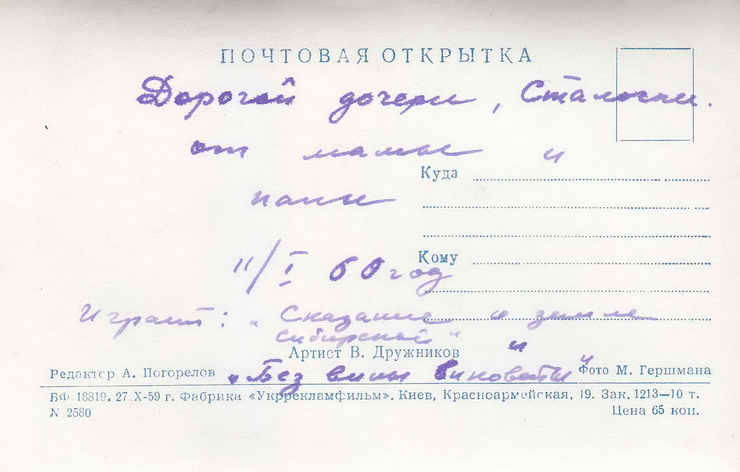 ПОЧТОВАЯ ОТКРЫТКА
Дорогой дочери,
от мамы и
Куда
папы
Кому
11/I 60 год
Играет: „Сказание о земле
Сибирской“ и
Артист В. Дружников
„Без вины виноватые“
Редактор А. Погорелов
Фото М. Гершмана
БФ 16819. 27.X-59 г. Фабрика «Укррекламфильм». Киев, Красноармейская, 19. Зак. 1213—10 т.
N 2580
Цена 65 коп.